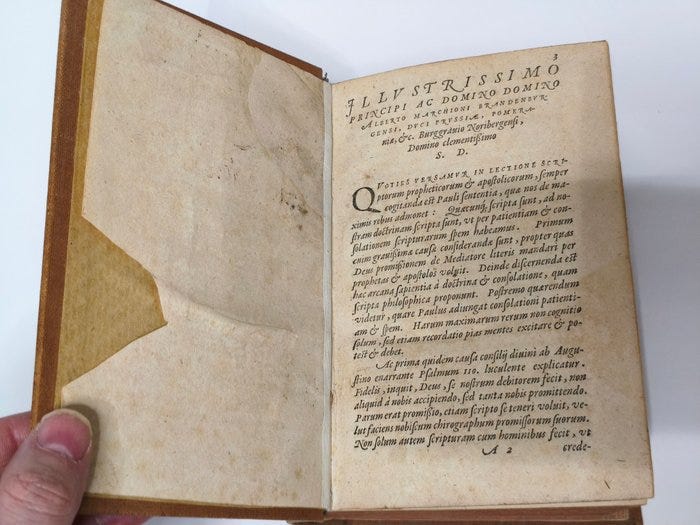 3
ILLVSTRISSIMO
PRINCIPI AC DOMINO DOMINO
ALBERTO MARCHIONI BRANDENBVR
GENSI, DVCI PRVSSIÆ, POMERA-
niæ, &c. Burggrauio Noribergensi,
Domino clementißimo
S. D.
QVOTIES VERSAMVR IN LECTIONE SCRI-
ptorum propheticorum & apostolicorum, semper
cogitanda est Pauli sententia, quæ nos de ma-
ximis rebus admonet: Quæcunq; scripta sunt, ad no-
stram doctrinam scripta sunt, vt per patientiam & con-
solationem scripturarum spem habeamus. Primum
enim grauißimæ causæ considerandæ sunt, propter quas
Deus promißionem de Mediatore literis mandari per
prophetas & apostolos voluit. Deinde discernenda est
hæc arcana sapientia à doctrina & consolatione, quam
scripta philosophica proponunt. Postremo quærendum
videtur, quare Paulus adiungat consolationi patienti-
am & spem. Harum maximarum rerum non cognitio
solum, sed etiam recordatio pias mentes excitare & po-
test & debet.
Ac prima quidem causa consilij diuini ab Augu-
stino enarrante Psalmum 110. luculente explicatur.
Fidelis, inquit, Deus, se nostrum debitorem fecit, non
aliquid à nobis accipiendo, sed tanta nobis promittendo.
Parum erat promißio, etiam scripto se teneri voluit, ve-
lut faciens nobiscum chirographum promissorum suorum.
Non solum autem scripturam cum hominibus fecit, vt
A 2 crede-